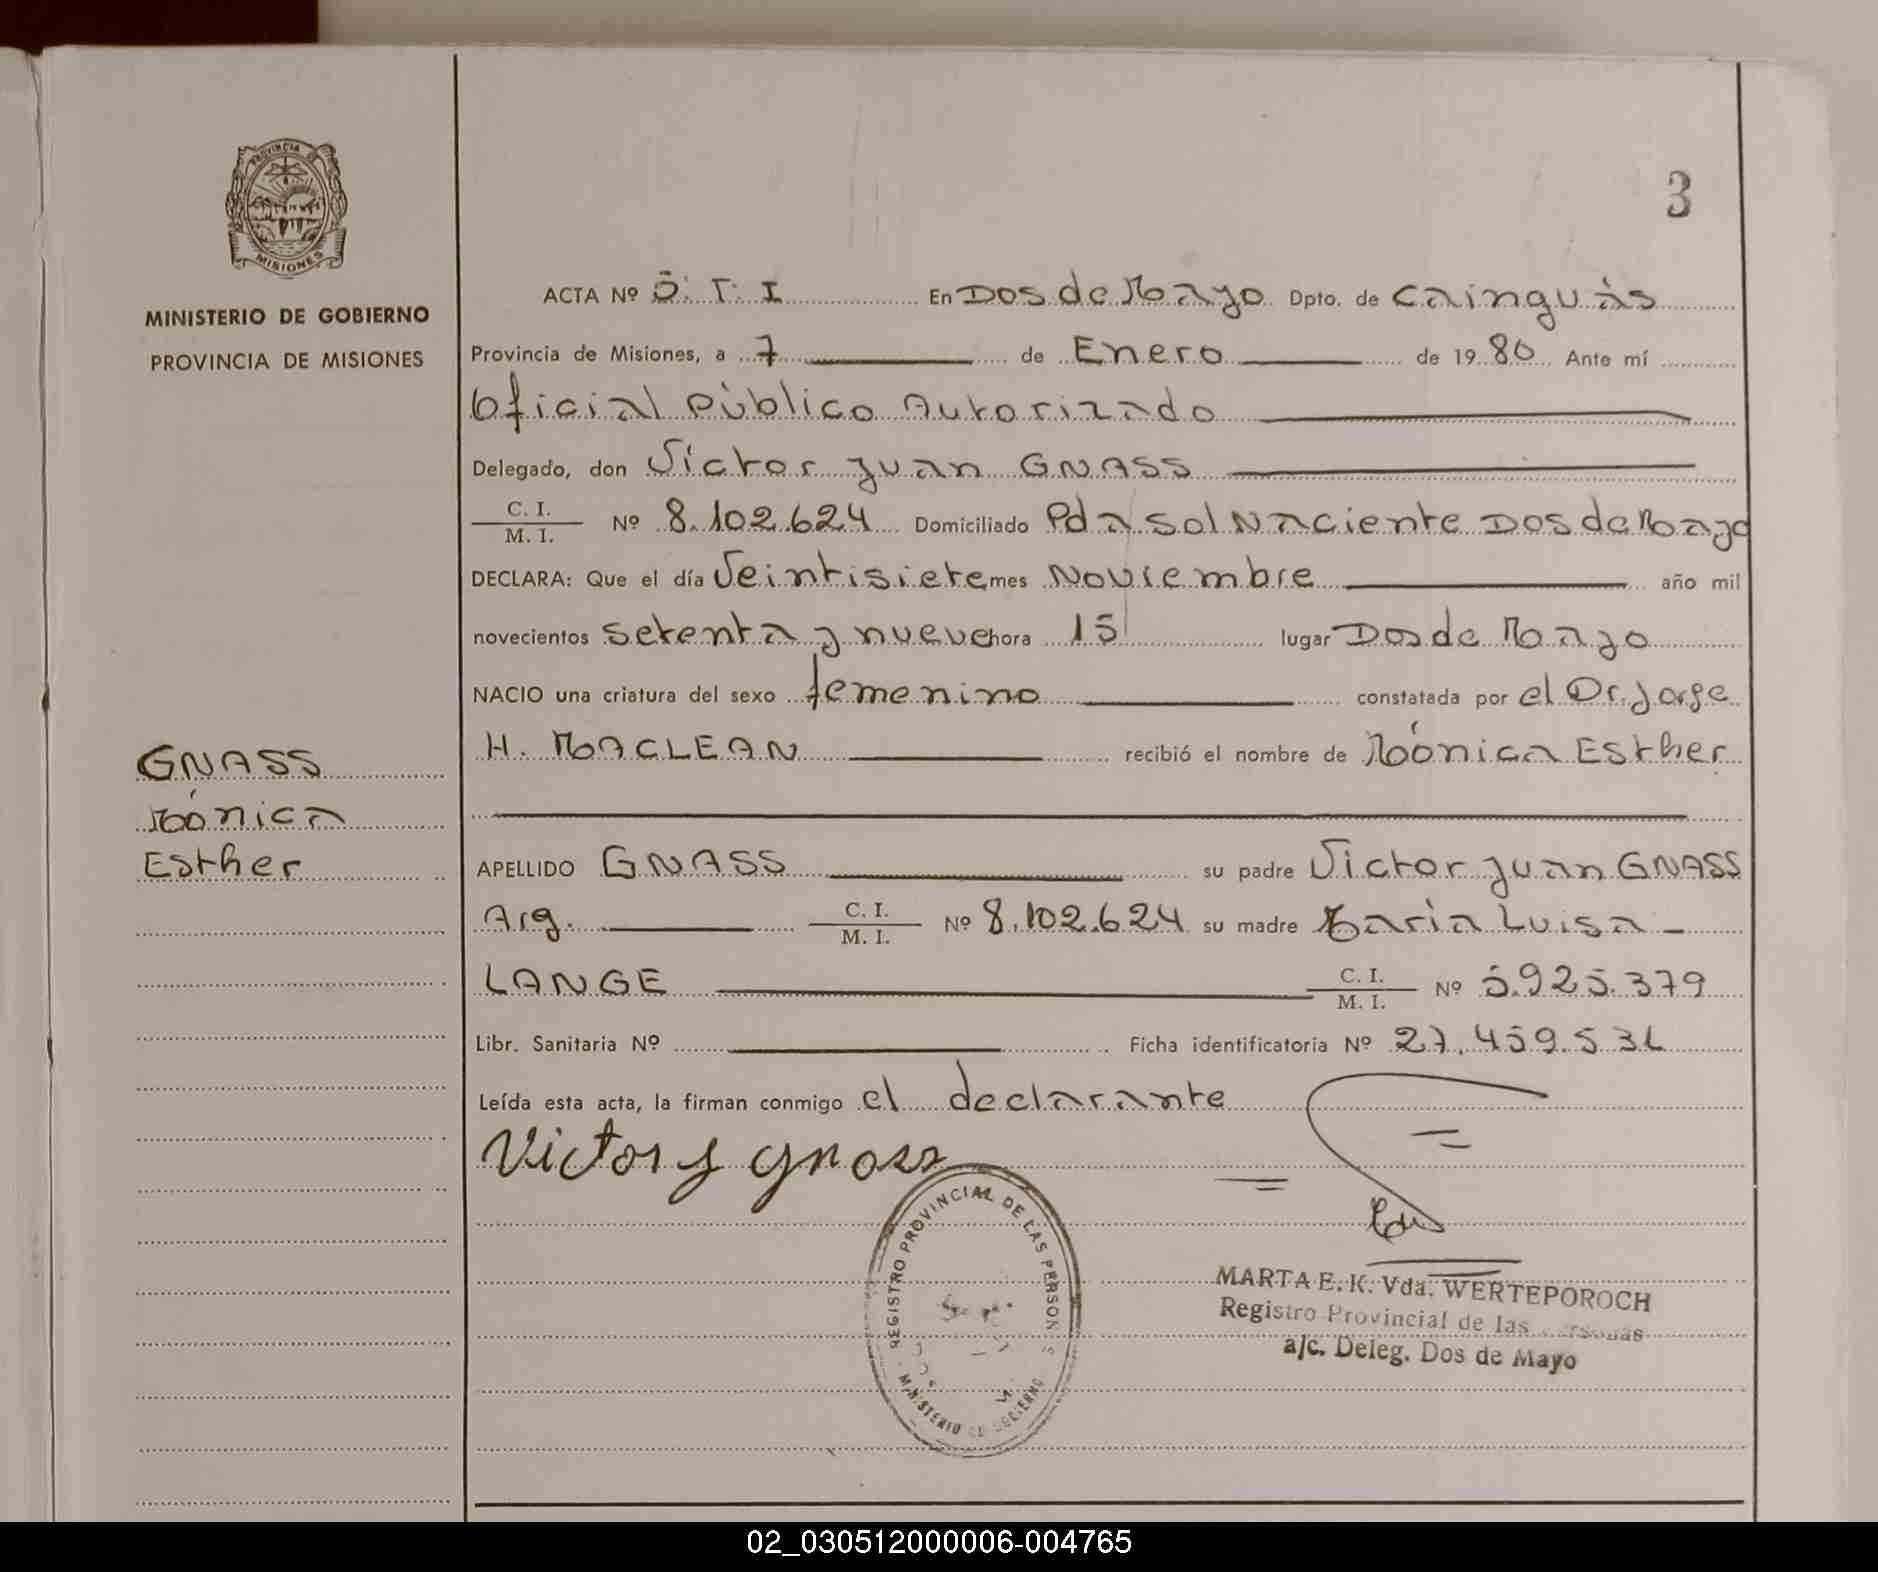 PROVINCIA DE
MISIONES
MINISTERIO DE GOBIERNO
PROVINCIA DE MISIONES
3
ACTA Nº 5. T. I En Dos de Mayo Dpto. de Cainguàs
Provincia de Misiones, a 7 de Enero de 1980 Ante mí
Oficial Público Autorizado
Delegado, don Victor Juan GNASS
C. I.
M. I. Nº 8.102.624 Domiciliado Pda Sol Naciente Dos de Mayo
DECLARA: Que el día Veintisiete mes Noviembre año mil
novecientos setenta y nueve hora 15 lugar Dos de Mayo
NACIO una criatura del sexo femenino constatada por el Dr. Jorge
H. MACLEAN recibió el nombre de Mónica Esther
GNASS
Mónica
Esther
APELLIDO GNASS su padre Victor Juan GNASS
Arg. C. I.
M. I. Nº 8.102.624 su madre Maria Luisa -
LANGE C. I.
M. I. Nº 5.925.379
Libr. Sanitaria Nº Ficha identificatoria Nº 27.459.531
Leída esta acta, la firman conmigo el declarante
Victor J gnass
REGISTRO PROVINCIAL DE LAS PERSONAS
MINISTERIO DE GOBIERNO
MARTA E. K. Vda. WERTEPOROCH
Registro Provincial de las Personas
a/c. Deleg. Dos de Mayo
02_030512000006-004765